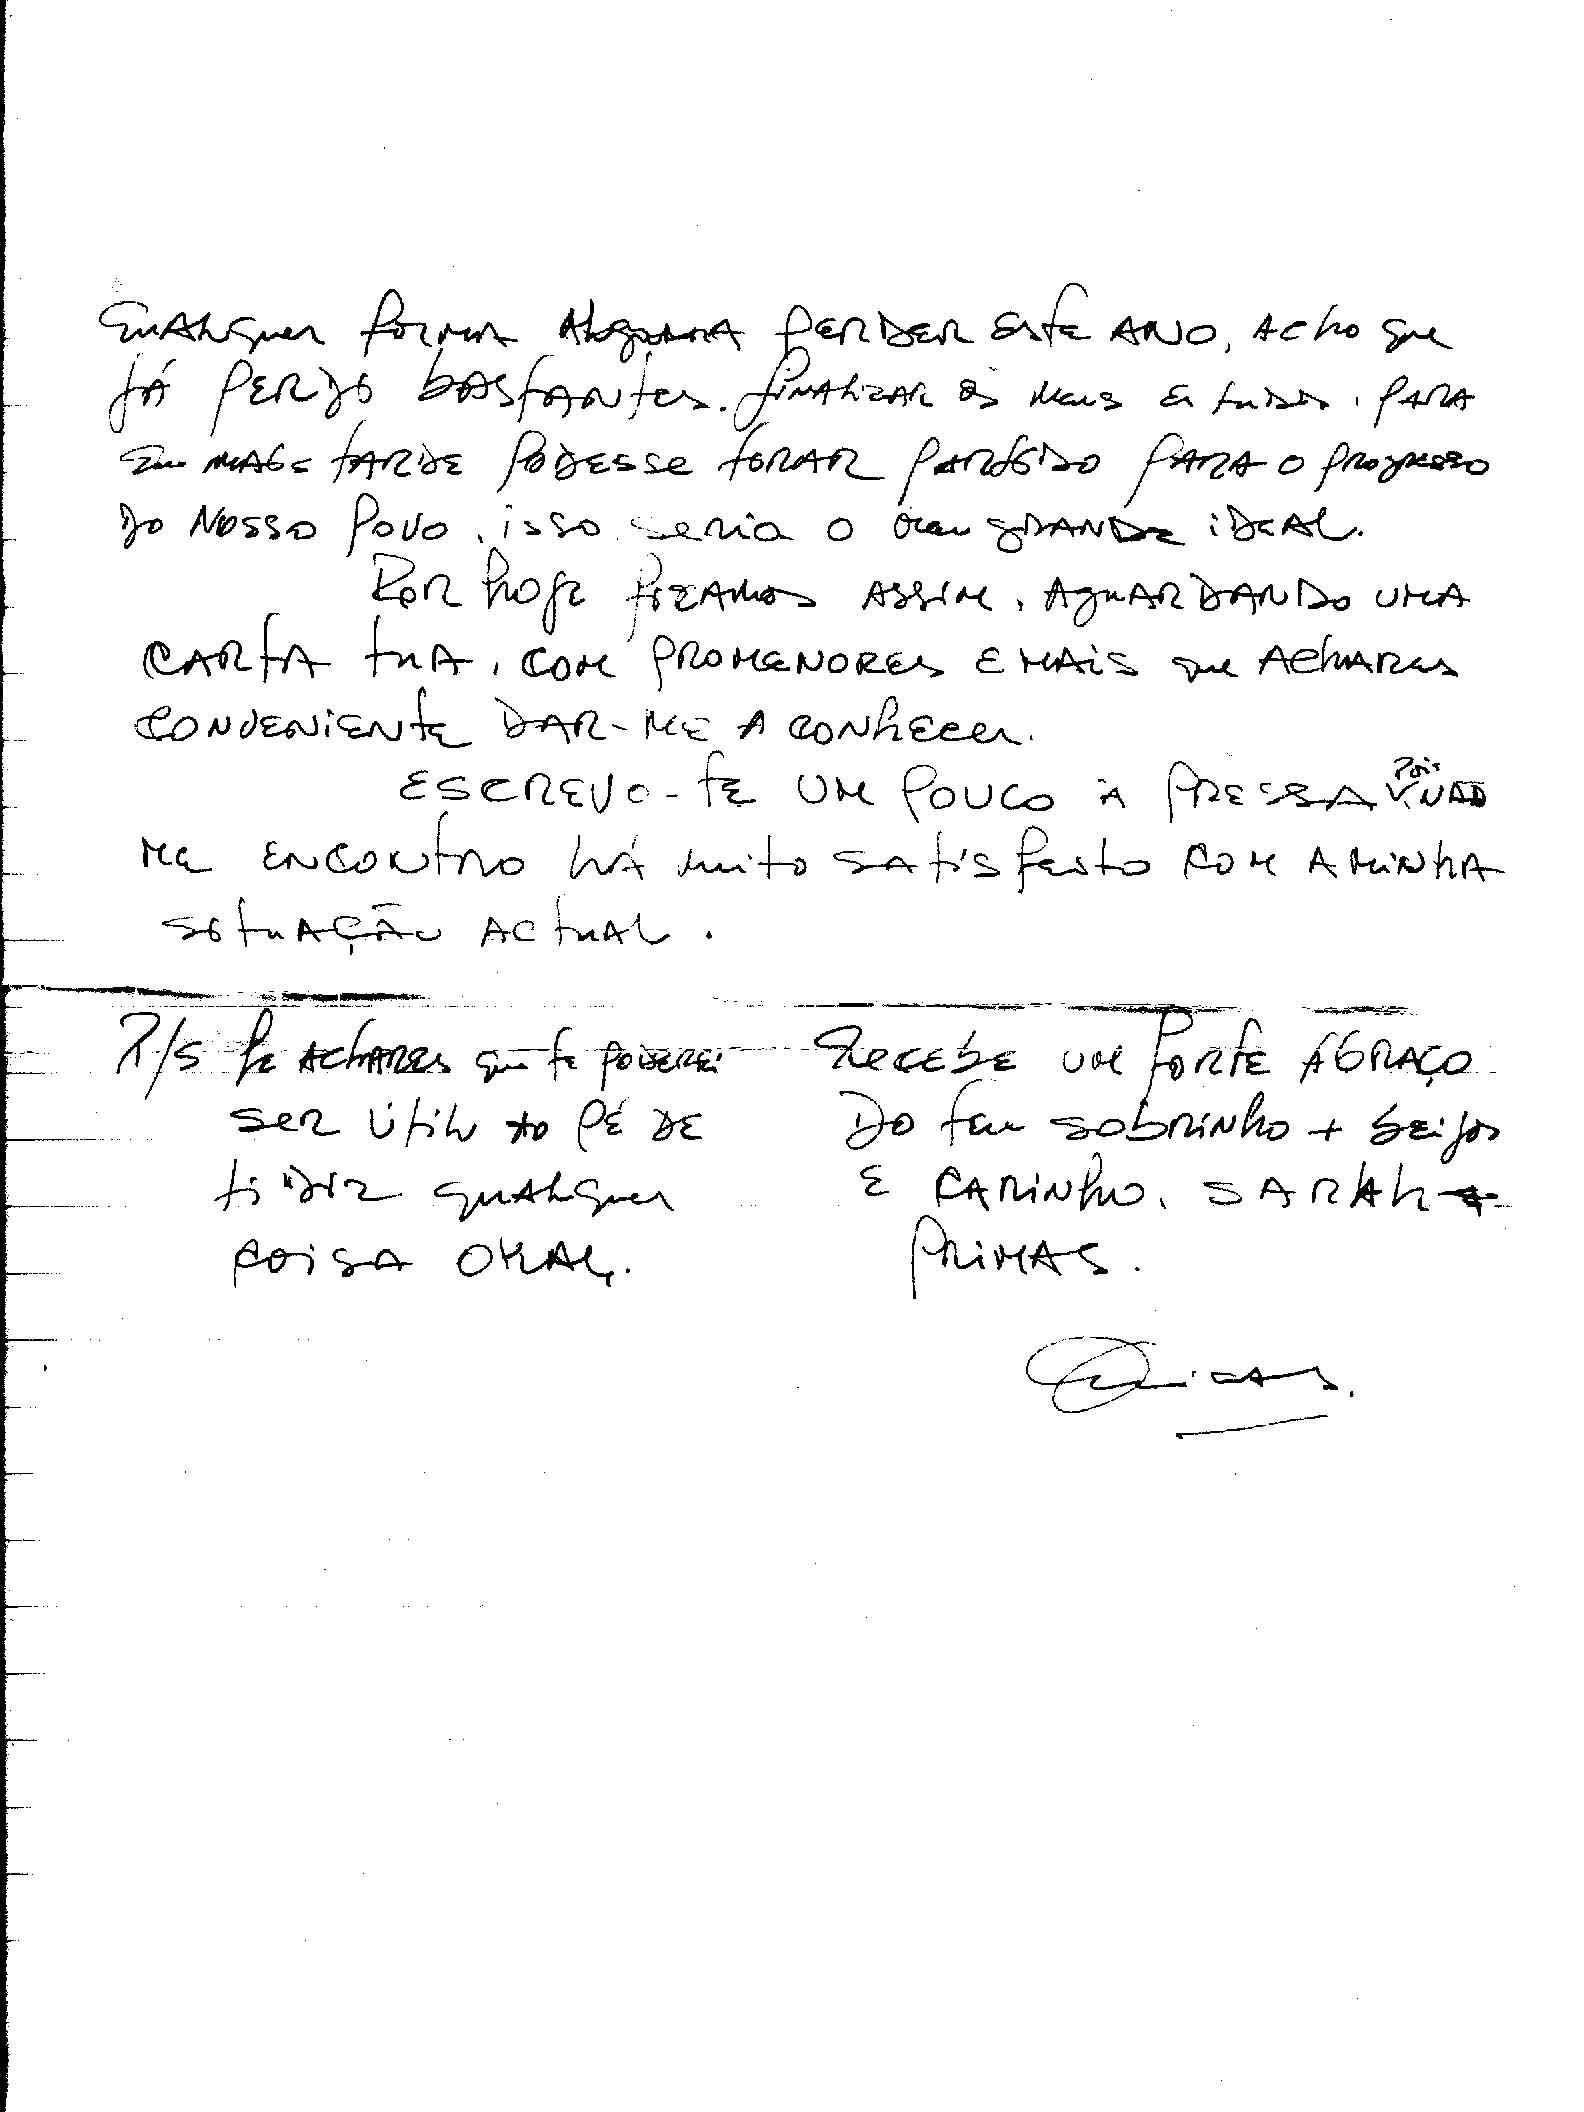 qualquer forma alguma perder este ano, acho que
já perdo bastantes. finalizar os meus estudos, para
eu mais tarde podesse torar partido para o progresso
do nosso povo, isso seria o meu grande ideal.
Por hoje ficamos assim, aguardando uma
carta tua, com promenores e mais que achares
conveniente dar-me a conhecer.
Escrevo-te um pouco à pressa pois não
me encontro há muito satisfeito com a minha
situação actual.
P/S Se achares que te poderei
ser útil ao pé de
ti diz qualquer
coisa OKAL.
Recebe um forte abraço
do teu sobrinho + beijos
e carinho, Sarah e
primas.